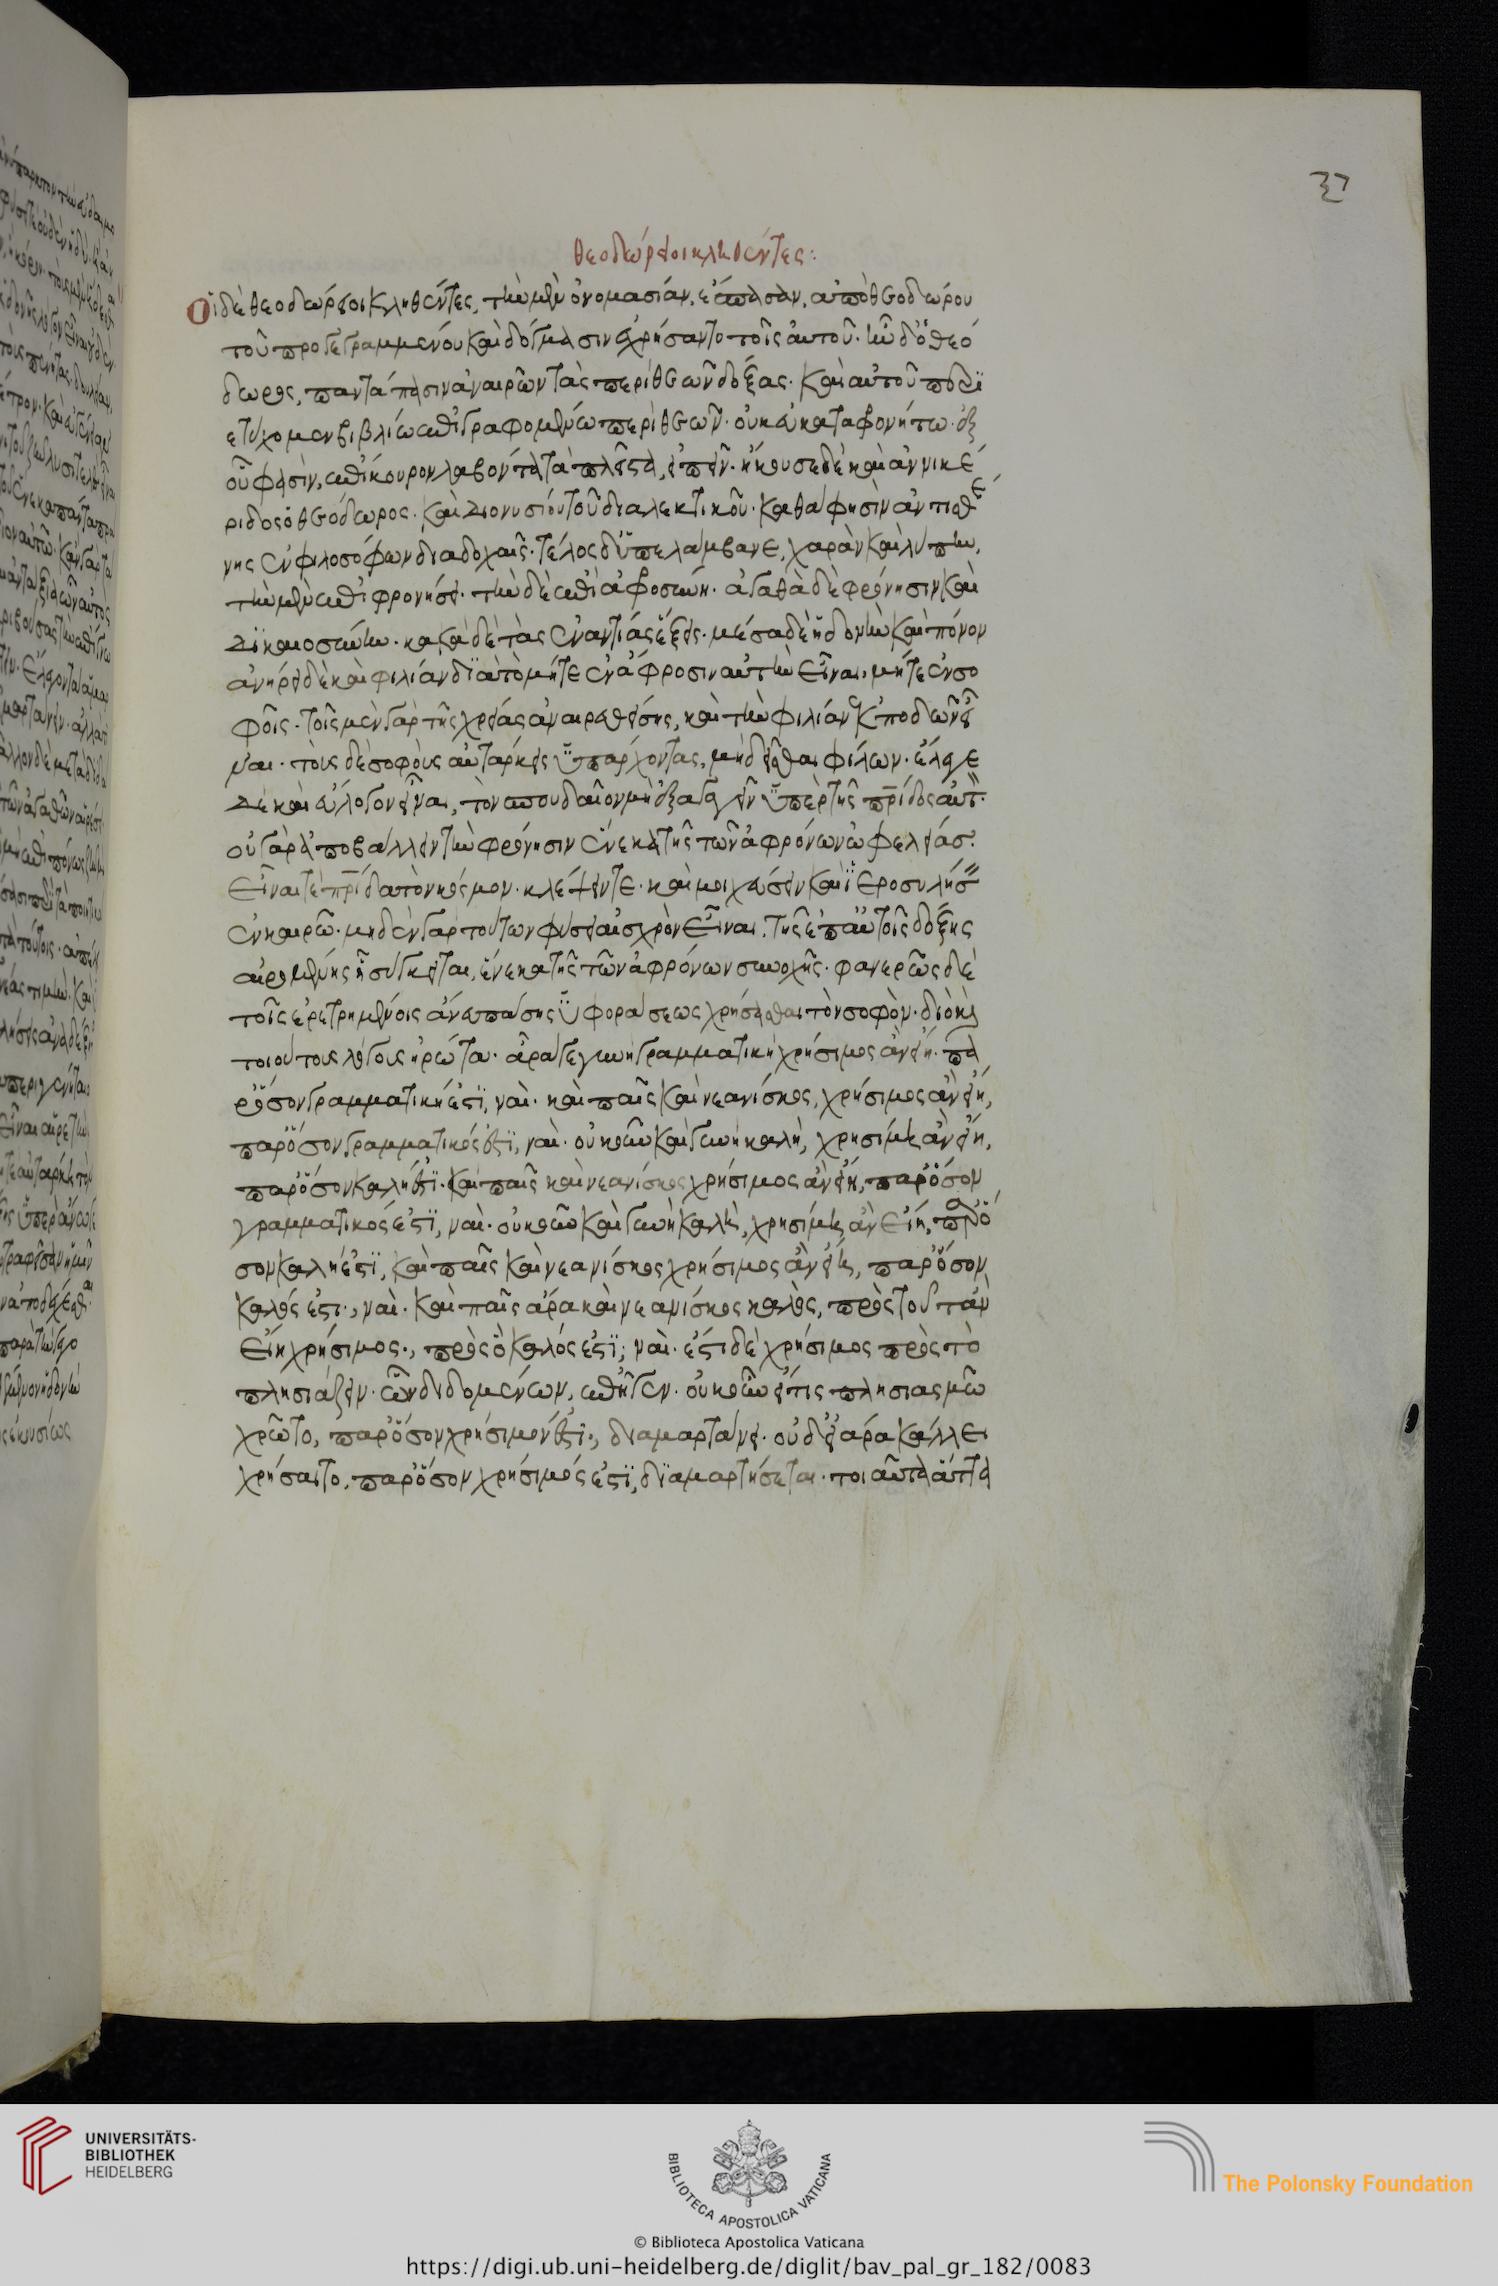 37
θεοδώρειοι κληθέντες:
Οἱ δὲ θεοδώρειοι κληθέντες, τὴν μὲν ὀνομασίαν, ἔσπασαν, ἀπὸ θεοδώρου
τοῦ προγεγραμμένου καὶ δόγμασιν ἐχρήσαντο τοῖς αὐτοῦ. ἦν δ' ὁ θεό
δωρος, παντάπασιν ἀναιρῶν τὰς περὶ θεῶν δόξας. καὶ αὐτοῦ περι
ετύχομεν βιβλίω ἐπιγραφομένω περὶ θεῶν. οὐκ εὐκαταφρονήτω. ἐξ
οὗ φασὶν, ἐπίκουρον λαβόντα τὰ πλεῖστα, εἰπεῖν. ἤκουσε δὲ καὶ ἀννικέ
ριδος ὁ θεόδωρος. καὶ διονυσίου τοῦ διαλεκτικοῦ. καθά φησιν ἀντισθέ
νης ἐν φιλοσόφων διαδοχαῖς. τέλος δ' ὑπελάμβανε, χαρὰν καὶ λύπην,
τὴν μὲν ἐπὶ φρονήσει. τὴν δὲ ἐπὶ ἀφροσύνη. ἀγαθὰ δὲ φρόνησιν καὶ
δικαιοσύνην. κακὰ δὲ τὰς ἐναντίας ἕξεις. μέσα δὲ ἡδονὴν καὶ πόνον
ἀνήρει δὲ καὶ φιλίαν διὰ τὸ μήτε ἐν ἄφροσιν αὐτὴν εἶναι, μήτε ἐν σο
φοῖς. τοῖς μὲν γὰρ τῆς χρείας ἀναιρεθείσης, καὶ τὴν φιλίαν ἐκποδὼν εἶ
ναι. τοὺς δὲ σοφοὺς αὐτάρκεις ὑπάρχοντας, μὴ δεῖσθαι φίλων. ἔλεγε
δὲ καὶ εὔλογον εἶναι, τὸν σπουδαῖον μὴ ἐξαγαγεῖν ὑπὲρ τῆς πρίδος αὑτ.
οὐ γὰρ ἀποβάλλειν τὴν φρόνησιν ἕνεκα τῆς τῶν ἀφρόνων ὠφελείας.
εἶναί τε πρίδα τὸν κόσμον. κλέψειν τε. καὶ μοιχεύσειν καὶ ἱεροσυλήσ
ἐν καιρῶ. μηδὲν γὰρ τούτων φύσει αἰσχρὸν εἶναι. τῆς ἐπ' αὐτοῖς δόξης
αἰρομένης ἣ σύγκειται, ἕνεκα τῆς τῶν ἀφρόνων συνοχῆς. φανερῶς δὲ
τοῖς ἐρετρημένοις ἄνευ πάσης ὑφοράσεως χρήσεσθαι τὸν σοφόν. διὸ καὶ
τοιούτους λόγους ἠρώτα. ἆρά γε γυνὴ γραμματικὴ χρήσιμος ἂν εἴη. πα
ρ' ὅσον γραμματική ἐστι, ναί. καὶ παῖς καὶ νεανίσκος, χρήσιμος ἂν εἴη,
παρ' ὅσον γραμματικός ἐστι, ναί. οὐκοῦν καὶ γυνὴ καλή, χρησίμη ἂν εἴη,
παρ' ὅσον καλή ἐστι. καὶ παῖς καὶ νεανίσκος χρήσιμος ἂν εἴη, παρ' ὅσον
γραμματικός ἐστι, ναί. οὐκοῦν καὶ γυνὴ καλὴ, χρησίμη ἂν εἴη, παρ' ὅ
σον καλή ἐστι, καὶ παῖς καὶ νεανίσκος χρήσιμος ἂν εἴη, παρ' ὅσον
καλός ἐστι, ναί. καὶ παῖς ἄρα καὶ νεανίσκος καλὸς, πρὸς τοῦτ' ἂν
εἴη χρήσιμος, πρὸς ὃ καλός ἐστι; ναί. ἔστι δὲ χρήσιμος πρὸς τὸ
πλησιάζειν. ὧν διδομένων, ἐπῆγεν. οὐκοῦν εἴ τις πλησιασμῶ
χρῶτο, παρ' ὅσον χρήσιμόν ἐστι, διαμαρτάνει. οὐδ' εἰ ἄρα κάλλει
χρήσαιτο, παρ' ὅσον χρήσιμός ἐστι, διαμαρτήσεται. τοιαῦτα ἄττα
UNIVERSITÄTS-
BIBLIOTHEK
HEIDELBERG
BIBLIOTECA APOSTOLICA VATICANA
The Polonsky Foundation
© Biblioteca Apostolica Vaticana
https://digi.ub.uni-heidelberg.de/diglit/bav_pal_gr_182/0083